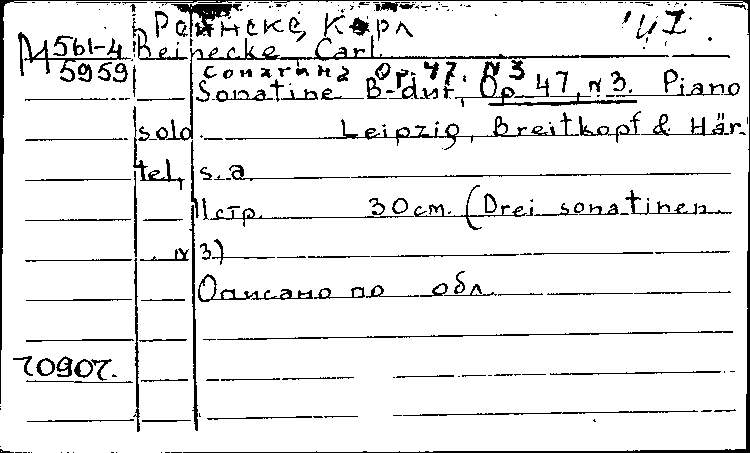 Рейнеке, Карл
М 561-4 Reinecke, Carl.
5959 Сонатина Op. 47. N3
Sonatine B-dur, Op 47, N 3. Piano
solo. Leipzig, Breitkopf & Här.
tel, s.a.
11 стр. 30 cm. (Drei sonatinen
N 3.)
Описано по обл.
70907.